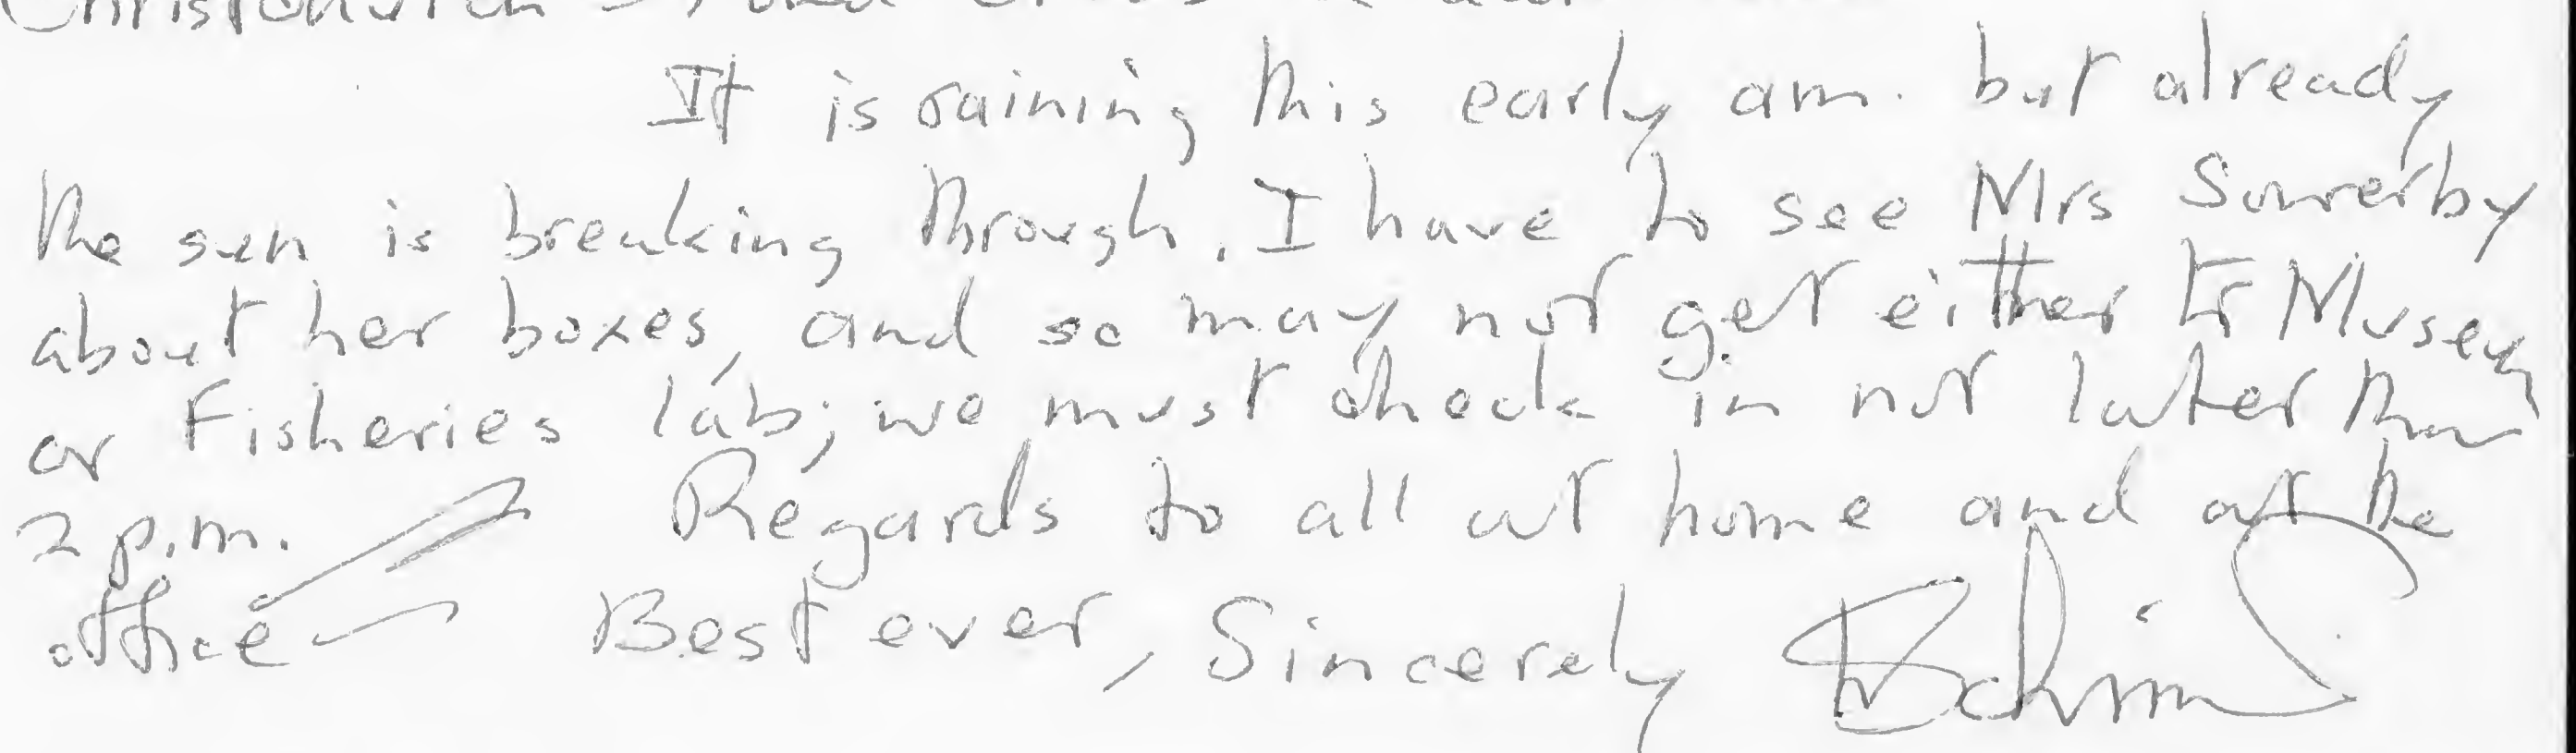 Christchurch
It is raining this early am. but already
the sun is breaking through. I have to see Mrs Sowerby
about her boxes, and so may not get either to Museum
or Fisheries lab; we must check in not later than
2 p.m. Regards to all at home and at the
office Best ever, Sincerely